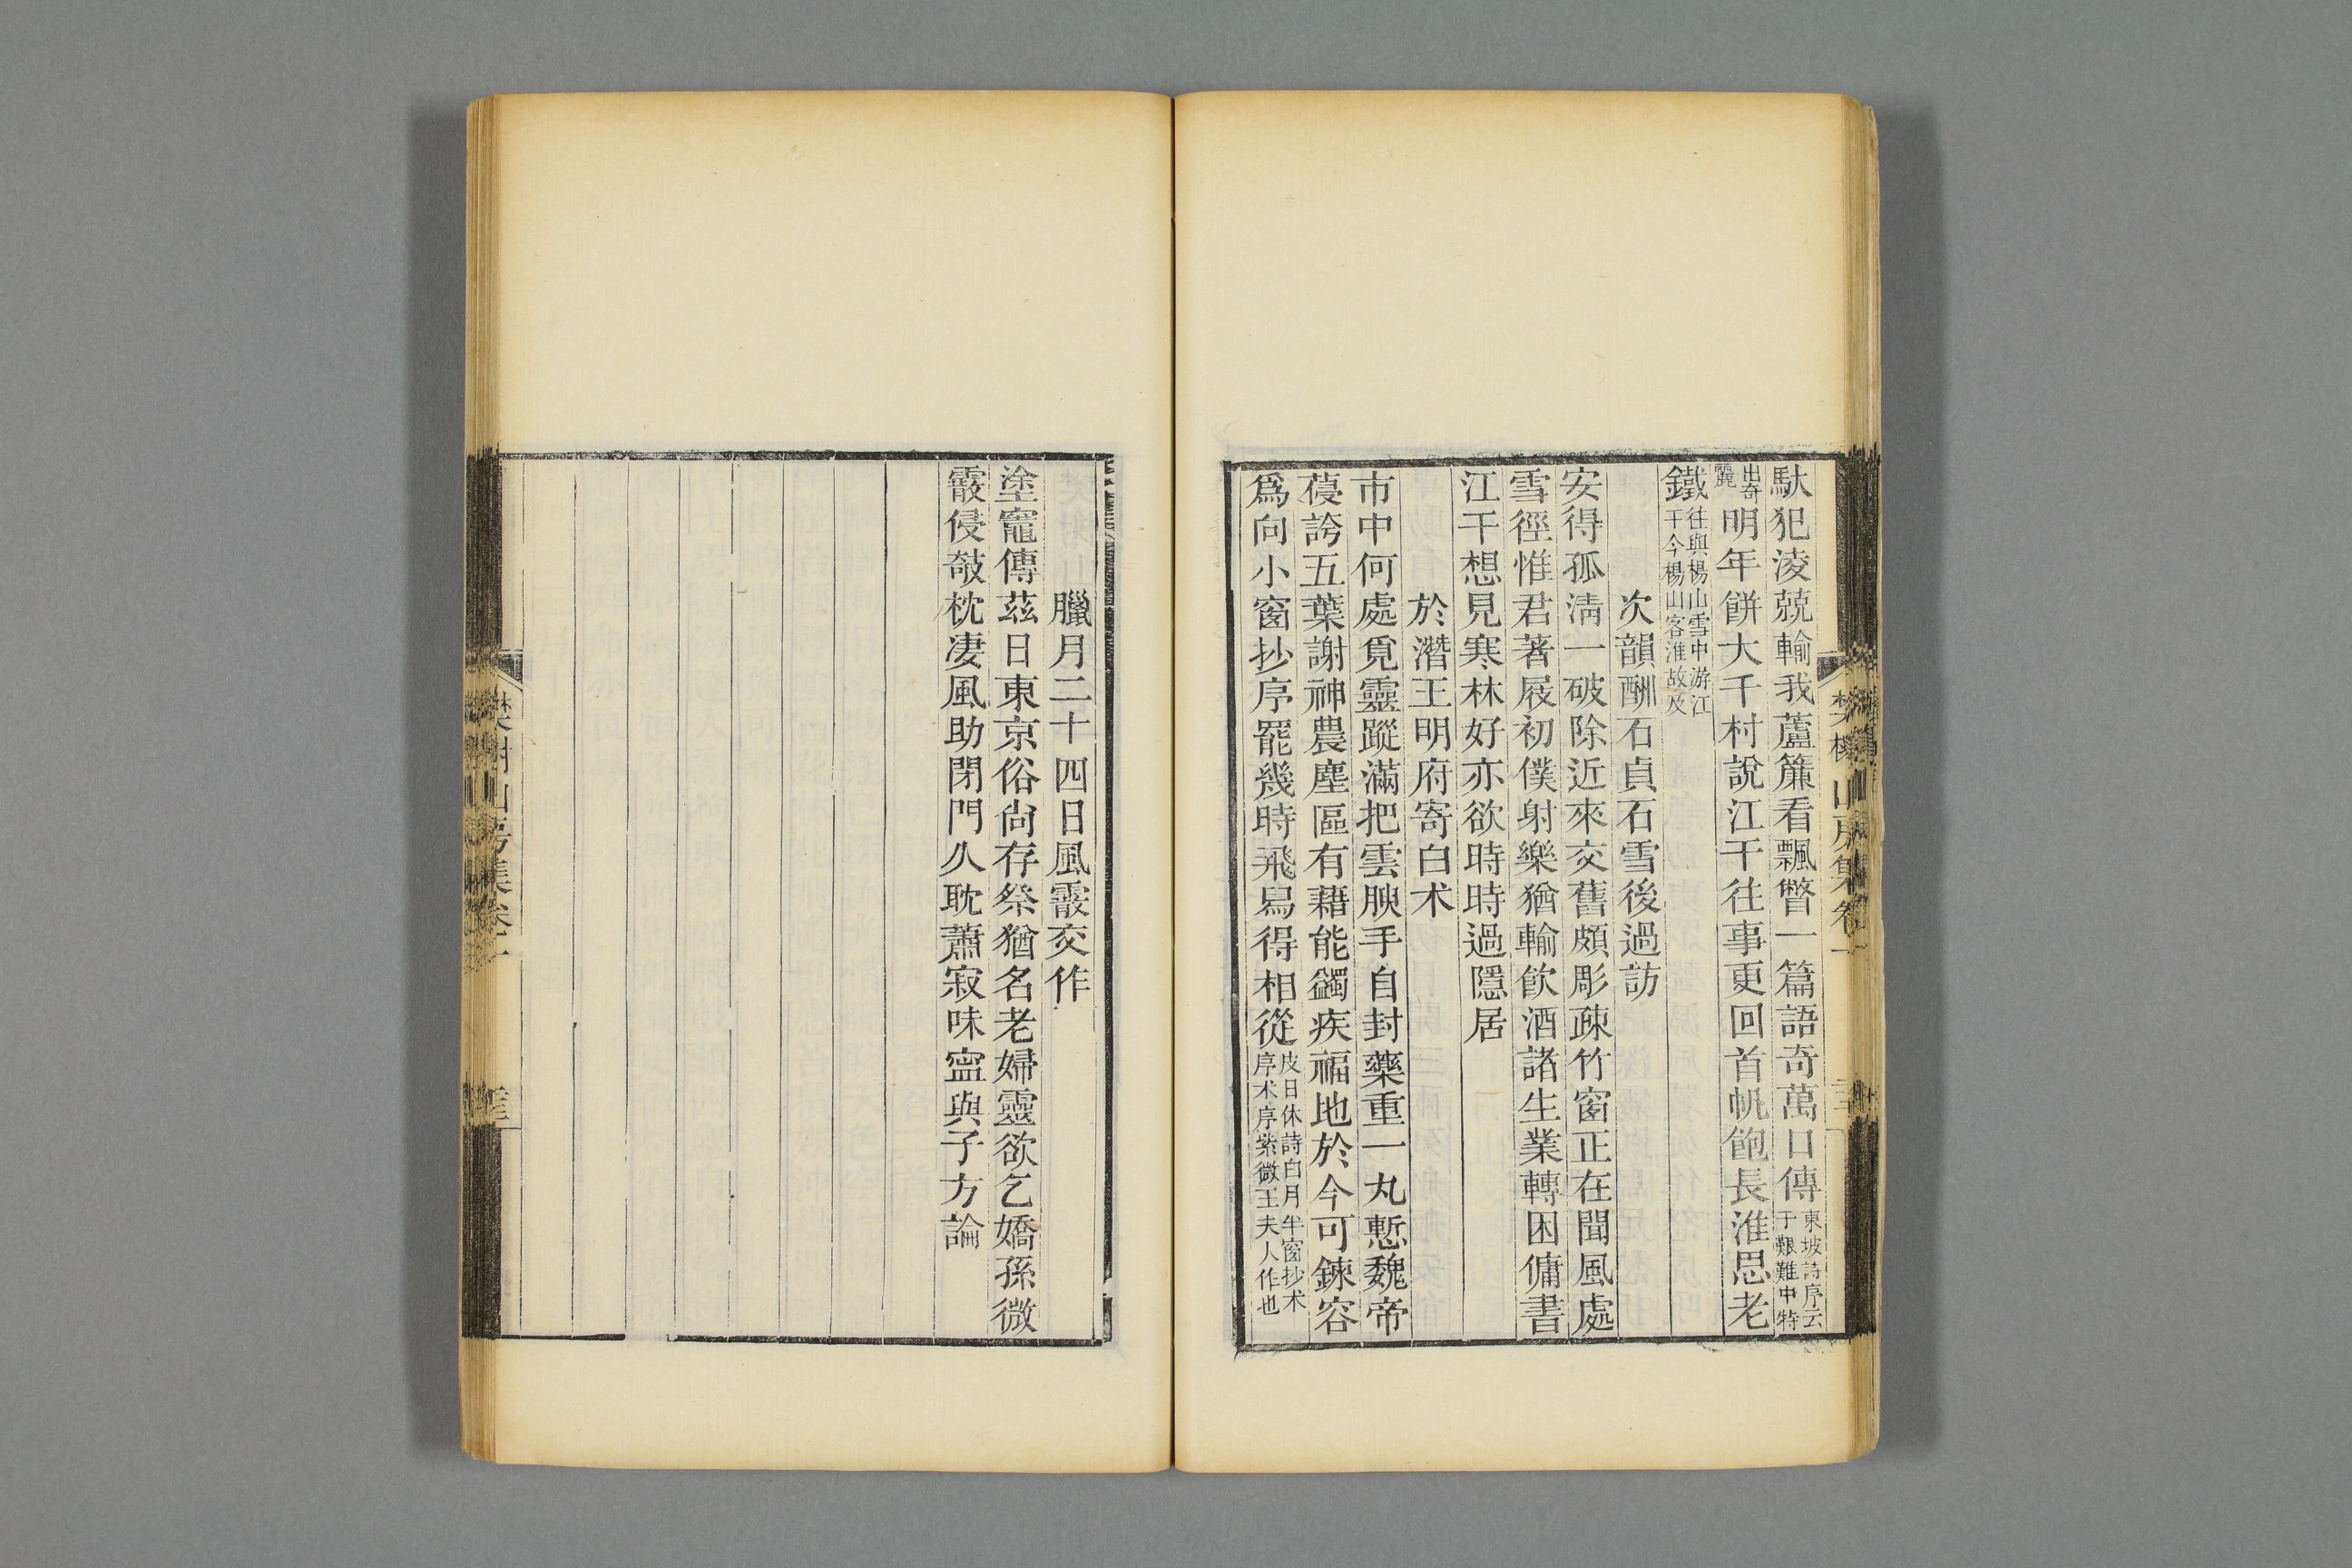 馱犯淩兢輸我蘆簾看飄瞥一篇語奇萬口傳東坡詩序云于艱難中特
出奇麗明年餅大千村說江干往事更回首帆飽長淮思老
鐵往與楊山雪中游江干今楊山客淮故及
次韻酬石貞石雪後過訪
安得孤清一破除近來交舊頗彫疎竹窗正在聞風處
雪徑惟君著屐初僕射樂猶輸飲酒諸生業轉困傭書
江干想見寒林好亦欲時時過隱居
於潛王明府寄白术
市中何處覓靈蹤滿把雲腴手自封藥重一丸慙魏帝
葠誇五葉謝神農塵區有藉能蠲疾福地於今可鍊容
爲向小窗抄序罷幾時飛舄得相從皮日休詩白月半窗抄术序术序紫微王夫人作也
樊榭山房集卷一
臘月二十四日風霰交作
塗竈傳茲日東京俗尙存祭猶名老婦靈欲乞嬌孫微
霰侵攲枕淒風助閉門久耽蕭寂味寍與子方論
樊榭山房集卷一